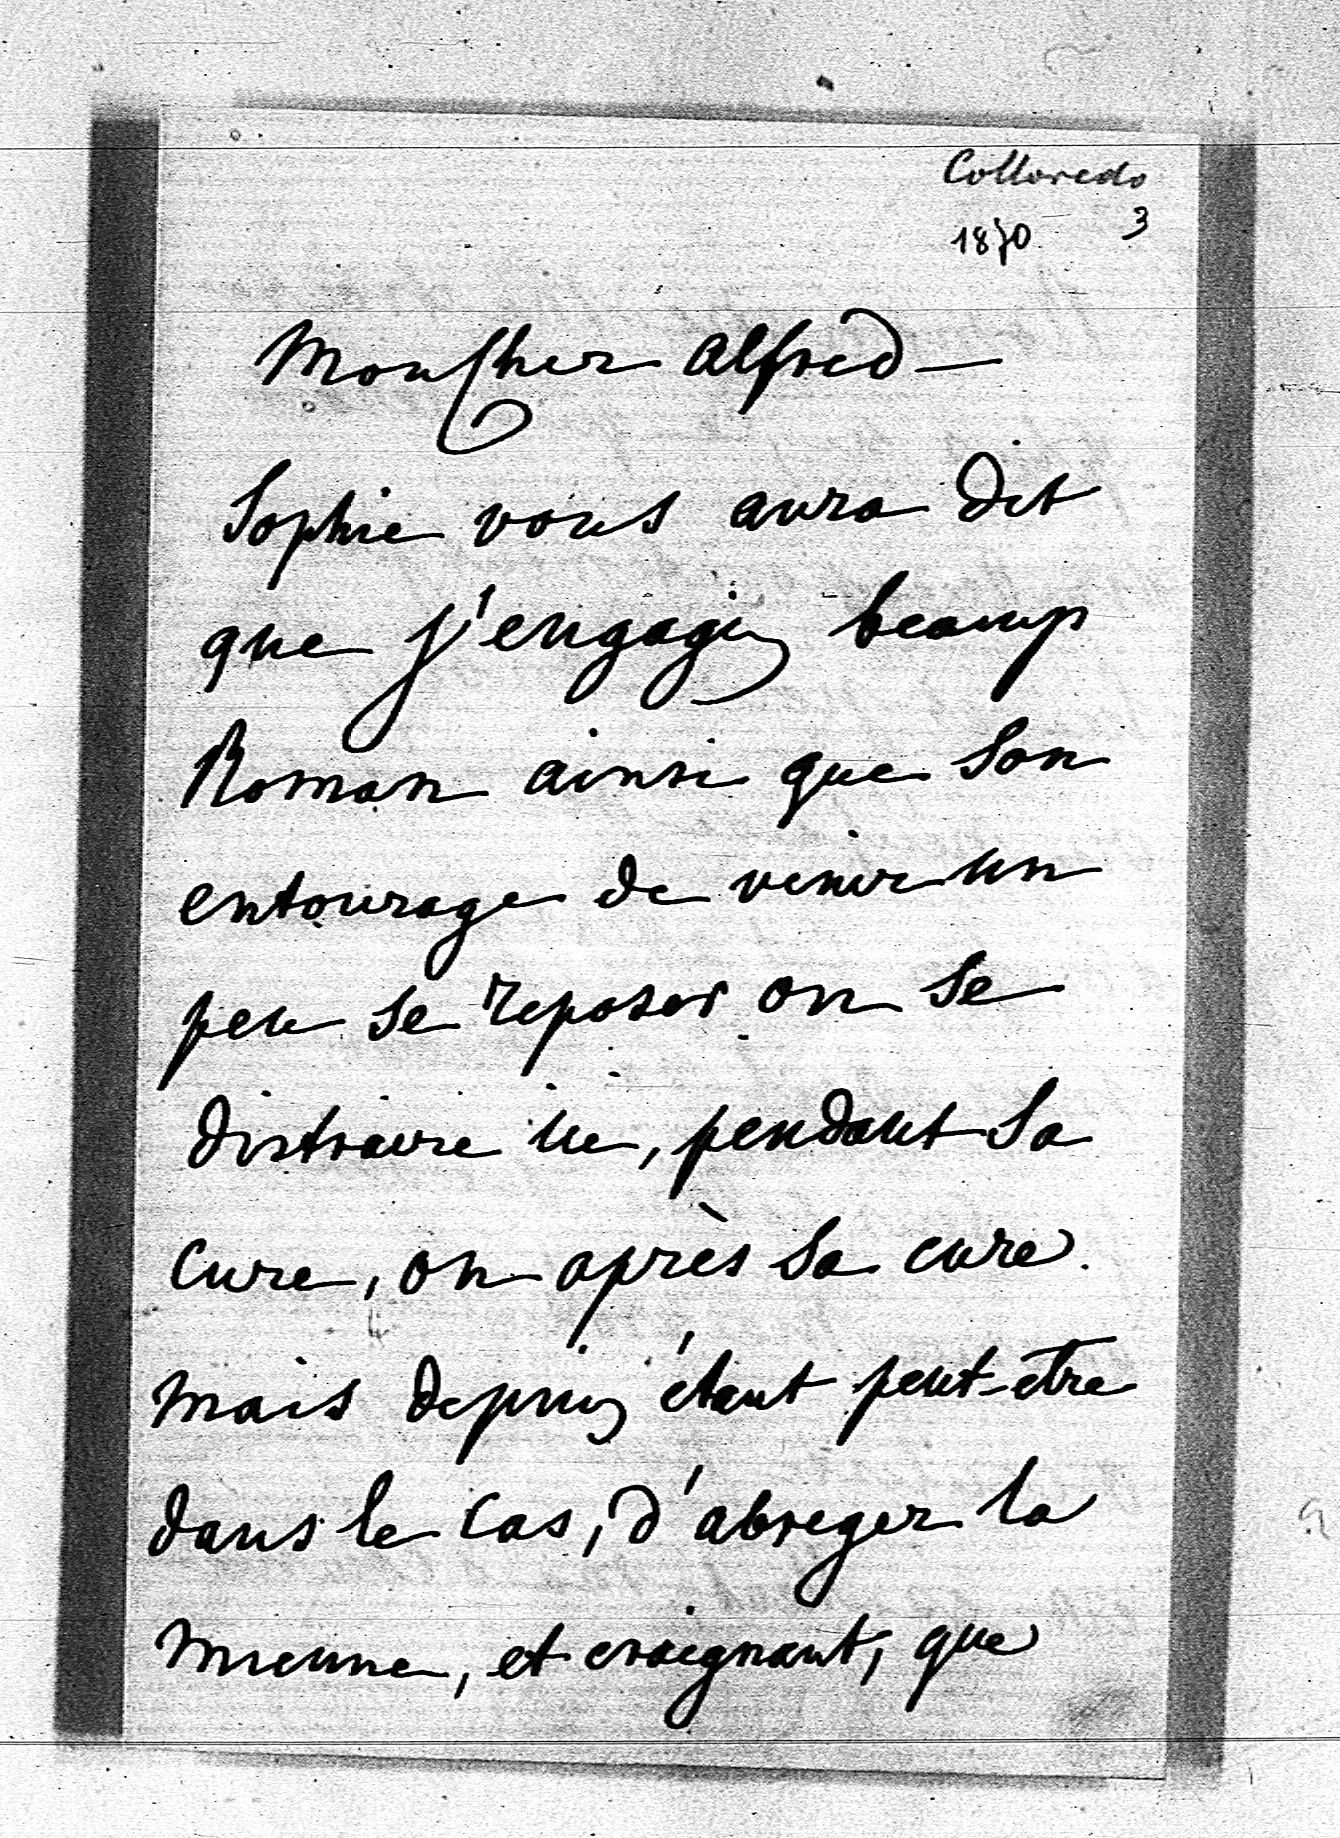 Colloredo
1870 3
Mon Cher Alfred —
Sophie vous aura dit
que j'engagie beaucup
Roman ainsi que son
entourage de venir un
peu se reposer ou se
distraire ici, pendant sa
cure, ou après sa cure.
Mais depuis étant peut-être
dans le cas, d'abreger la
mienne, et craignant, que